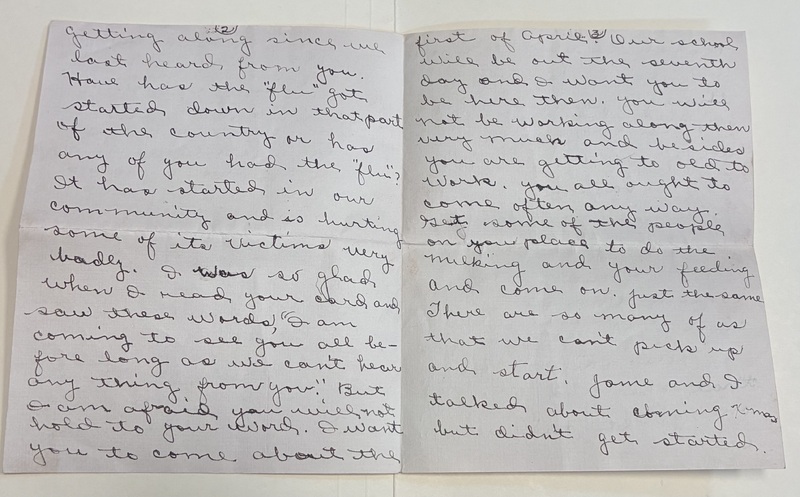 (2)
getting along since we
last heard from you.
Have has the "flu" got
started down in that part
of the country or has
any of you had the "flu"?
It has started in our
community and is hurting
some of its victims very
badly. I was so glad
when I read your card and
saw these words, "I am
coming to see you all be-
fore long as we can't hear
any thing from you". But
I am afraid you will not
hold to your word. I want
you to come about the
(3)
first of April. Our school
will be out the seventh
day and I want you to
be here then. You will
not be working along then
very much and besides
you are getting to old to
work. You all ought to
come often any way.
Get some of the people
on you place to do the
milking and your feeding
and come on. Just the same
There are so many of us
that we can't pick up
and start. Jame and I
talked about coming Xmas
but didn't get started.